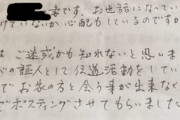 者です。お世話になってい
けていないか心配もしているのですが
は ご迷惑かも知れないと思いま
の証人として伝道活動をしてい
でお家の方と会う事が出来なく
ポスティングさせてもらいました